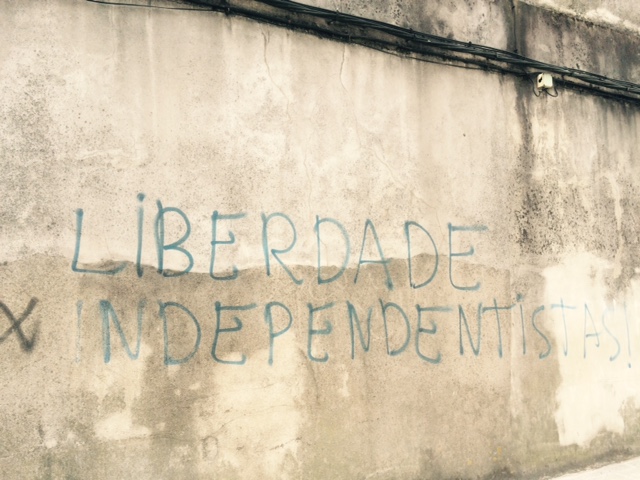 LIBERDADE
X INDEPENDENTISTAS!